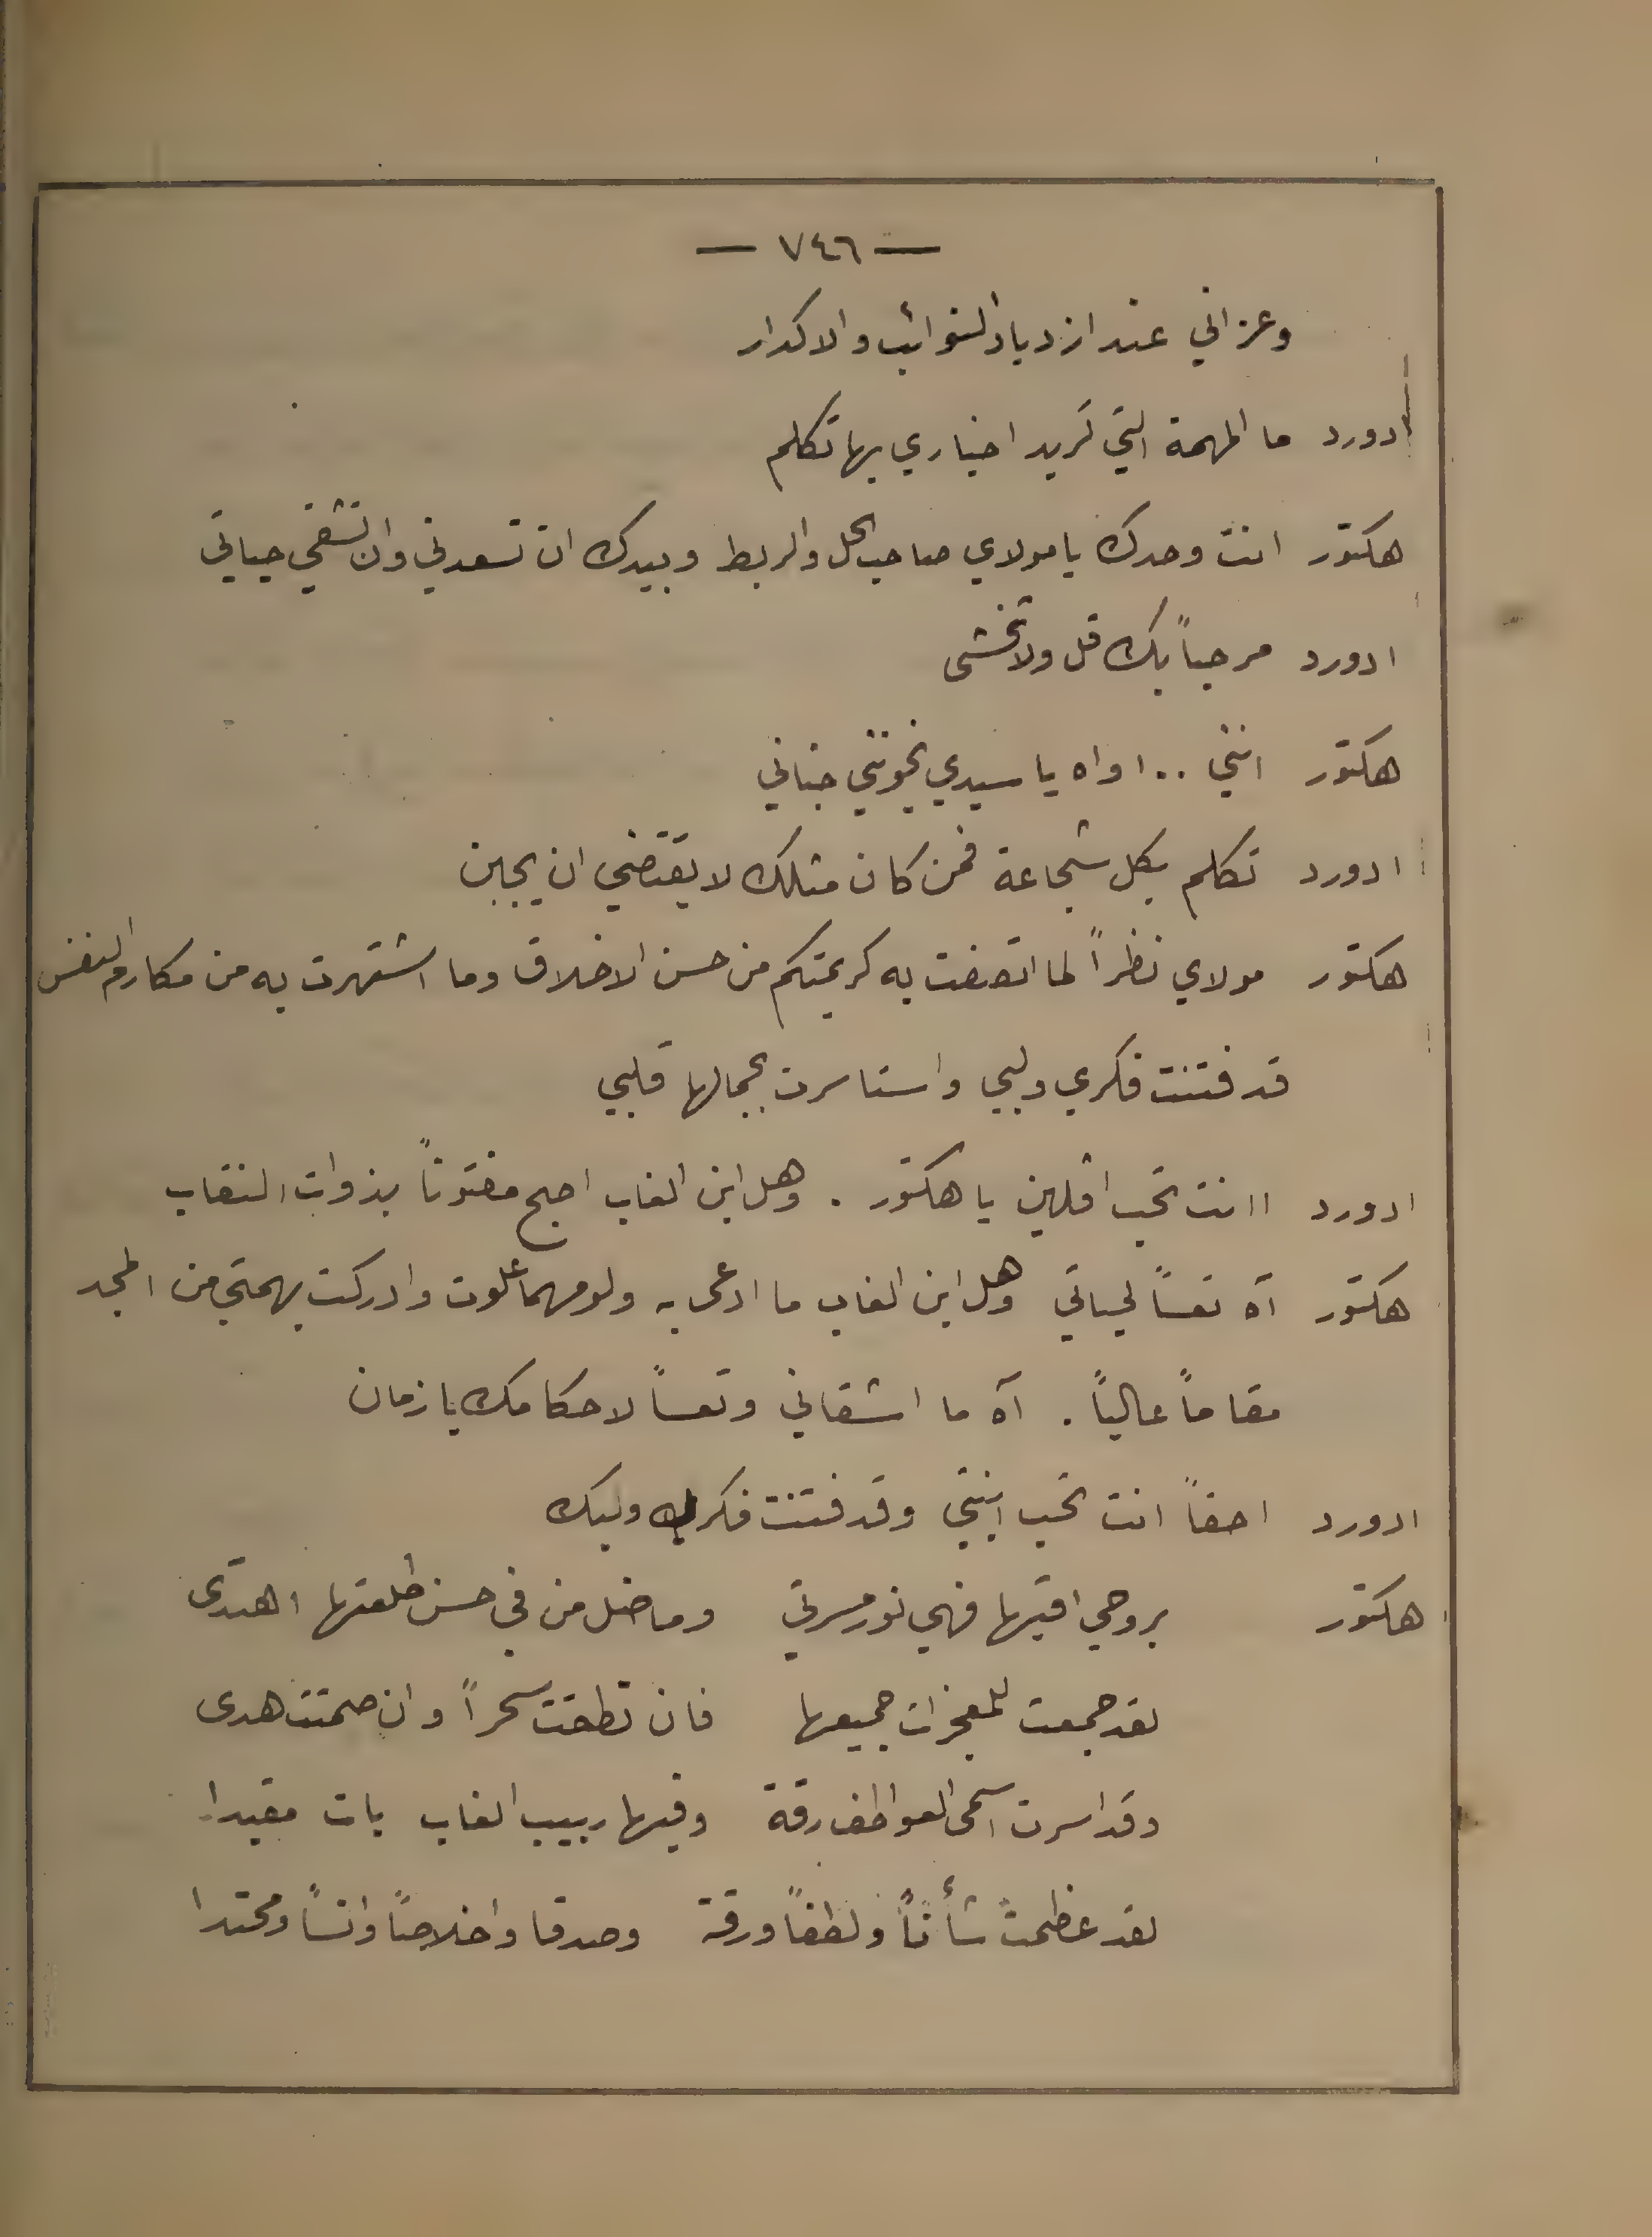 — ٧٤٦ —
وعزائي عند ازدياد النوائب والاكدار
ادورد ما المهمة التي تريد اخباري بها تكلم
هكتور انت وحدك يا مولاي صاحب الحل والربط وبيدك ان تسعدني وان تشقي حياتي
ادورد مرحباً بك قل ولا تخشى
هكتور انني .. اواه يا سيدي يخونني جناني
ادورد تكلم بكل شجاعة فمن كان مثلك لا يقتضي ان يجبن
هكتور مولاي نظراً لما اتصفت به كريمتكم من حسن الاخلاق وما اشتهرت به من مكارم النفس
قد فتنت فكري ولبي واستاسرت بجمالها قلبي
ادورد اانت تحب افلين يا هكتور . وهل ابن الغاب اصبح مفتوناً بذوات النقاب
هكتور آه تعساً لحياتي وهل ابن الغاب ما ادعى به ولو مهما علوت وادركت بهمتي من المجد
مقاماً عالياً . آه ما اشقاني وتعساً لاحكامك يا زمان
ادورد احقاً انت تحب ابنتي وقد فتنت فكرك ولبك
هكتور بروحي اقيها فهي نور مسرتي وما ضل من في حسن طلعتها اهتدى
لقد جمعت للمعجزات جميعها فان نطقت سحراً وان صمتت هدى
وقد اسرت اسمى العواطف رقة وفيها ربيب الغاب بات مقيدا
لقد عظمت شأناً ولطفاً ورقة وصدقا واخلاصاً وانساً ومحتدا